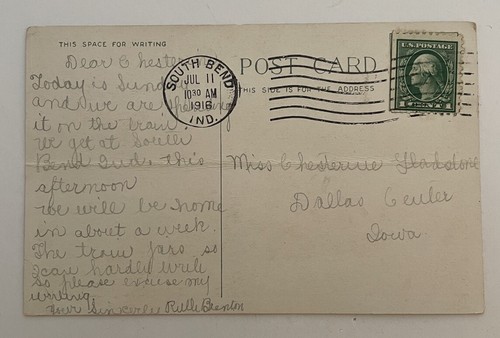 THIS SPACE FOR WRITING
Dear Chester
Today is Sund
and we are
it on the train
We get at South
Bend Ind. this
afternoon
We will be home
in about a week.
The train jars so
I can hardly write
so please excuse my
writing.
Your Sinkerly Ruth Brenton
SOUTH BEND
JUL 11
10 30 AM
1916
IND.
POST CARD
THIS SIDE IS FOR THE ADDRESS
U.S. POSTAGE
Miss Chesterine Gladstone
Dallas Center
Iowa.